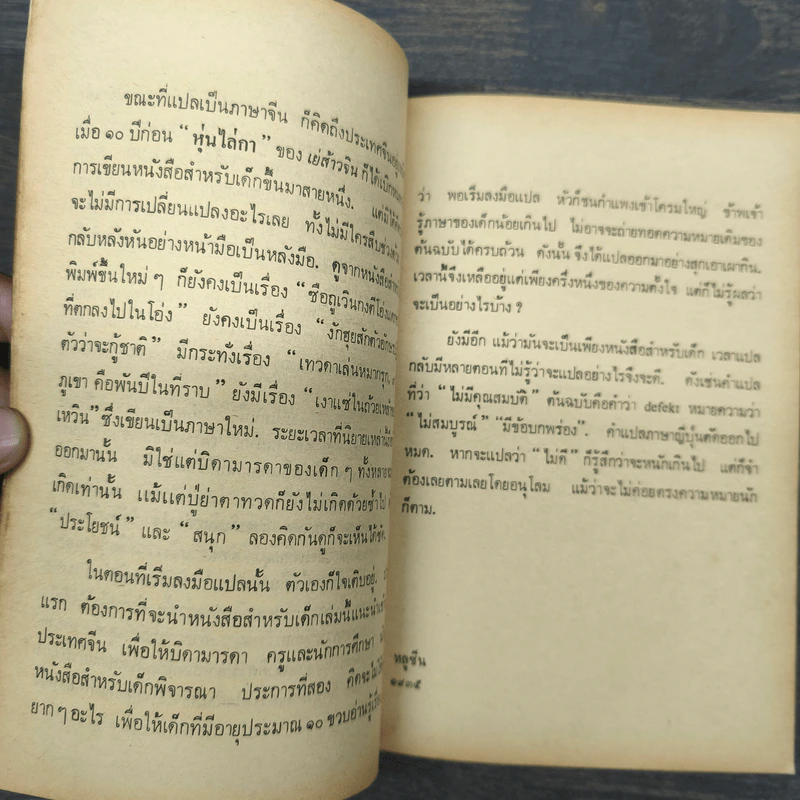 ขณะที่แปลเป็นภาษาจีน ก็คิดถึงประเทศจีน
เมื่อ ๑๐ ปีก่อน “หุ่นไล่กา” ของ เย่ส้าวจิน ก็ได้เบิก
การเขียนหนังสือสำหรับเด็กขึ้นมาสายหนึ่ง. แต่มิได้
จะไม่มีการเปลี่ยนแปลงอะไรเลย ทั้งไม่มีใครสืบช่วง
กลับหลังหันอย่างหน้ามือเป็นหลังมือ. ดูจากหนังสือ
พิมพ์ขึ้นใหม่ ๆ ก็ยังคงเป็นเรื่อง “ซือถูเวินกงตีโอ่ง
ที่ตกลงไปในโอ่ง” ยังคงเป็นเรื่อง “งักฮุยสักตัวอักษร
ตัวว่าจะกู้ชาติ” มีกระทั่งเรื่อง “เทวดาเล่นหมากรุก,
ภูเขา คือพันปีในที่ราบ” ยังมีเรื่อง “เงาแซ่ในถ้วยเหล้า
เหวิน” ซึ่งเขียนเป็นภาษาใหม่. ระยะเวลาที่นิยายเหล่านี้
ออกมานั้น มิใช่แต่บิดามารดาของเด็ก ๆ ทั้งหลาย
เกิดเท่านั้น แม้แต่ปู่ย่าตาทวดก็ยังไม่เกิดด้วยซ้ำไป
“ประโยชน์” และ “สนุก” ลองคิดกันดูก็จะเห็นได้ชัด.
ในตอนที่เริ่มลงมือแปลนั้น ตัวเองก็ใจเติบอยู่.
แรก ต้องการที่จะนำหนังสือสำหรับเด็กเล่มนี้แนะนำ
ประเทศจีน เพื่อให้บิดามารดา ครูและนักการศึกษา
หนังสือสำหรับเด็กพิจารณา ประการที่สอง คิดจะไม่
ยาก ๆ อะไร เพื่อให้เด็กที่มีอายุประมาณ ๑๐ ขวบอ่านรู้
ว่า พอเริ่มลงมือแปล หัวก็ชนกำแพงเข้าโครมใหญ่ ข้าพเจ้า
รู้ภาษาของเด็กน้อยเกินไป ไม่อาจจะถ่ายทอดความหมายเดิมของ
ต้นฉบับได้ครบถ้วน ดังนั้น จึงได้แปลออกมาอย่างสุกเอาเผากิน.
เวลานี้จึงเหลืออยู่แต่เพียงครึ่งหนึ่งของความตั้งใจ แต่ก็ไม่รู้ผลว่า
จะเป็นอย่างไรบ้าง ?
ยังมีอีก แม้ว่ามันจะเป็นเพียงหนังสือสำหรับเด็ก เวลาแปล
กลับมีหลายตอนที่ไม่รู้ว่าจะแปลอย่างไรจึงจะดี. ดังเช่นคำแปล
ที่ว่า “ไม่มีคุณสมบัติ” ต้นฉบับคือคำว่า defekt หมายความว่า
“ไม่สมบูรณ์” “มีข้อบกพร่อง”. คำแปลภาษาญี่ปุ่นตัดออกไป
หมด. หากจะแปลว่า “ไม่ดี” ก็รู้สึกว่าจะหนักเกินไป แต่ก็จำ
ต้องเลยตามเลยโดยอนุโลม แม้ว่าจะไม่ค่อยตรงความหมายนัก
ก็ตาม.
หลู่ซึ่น
๑๙๓๕